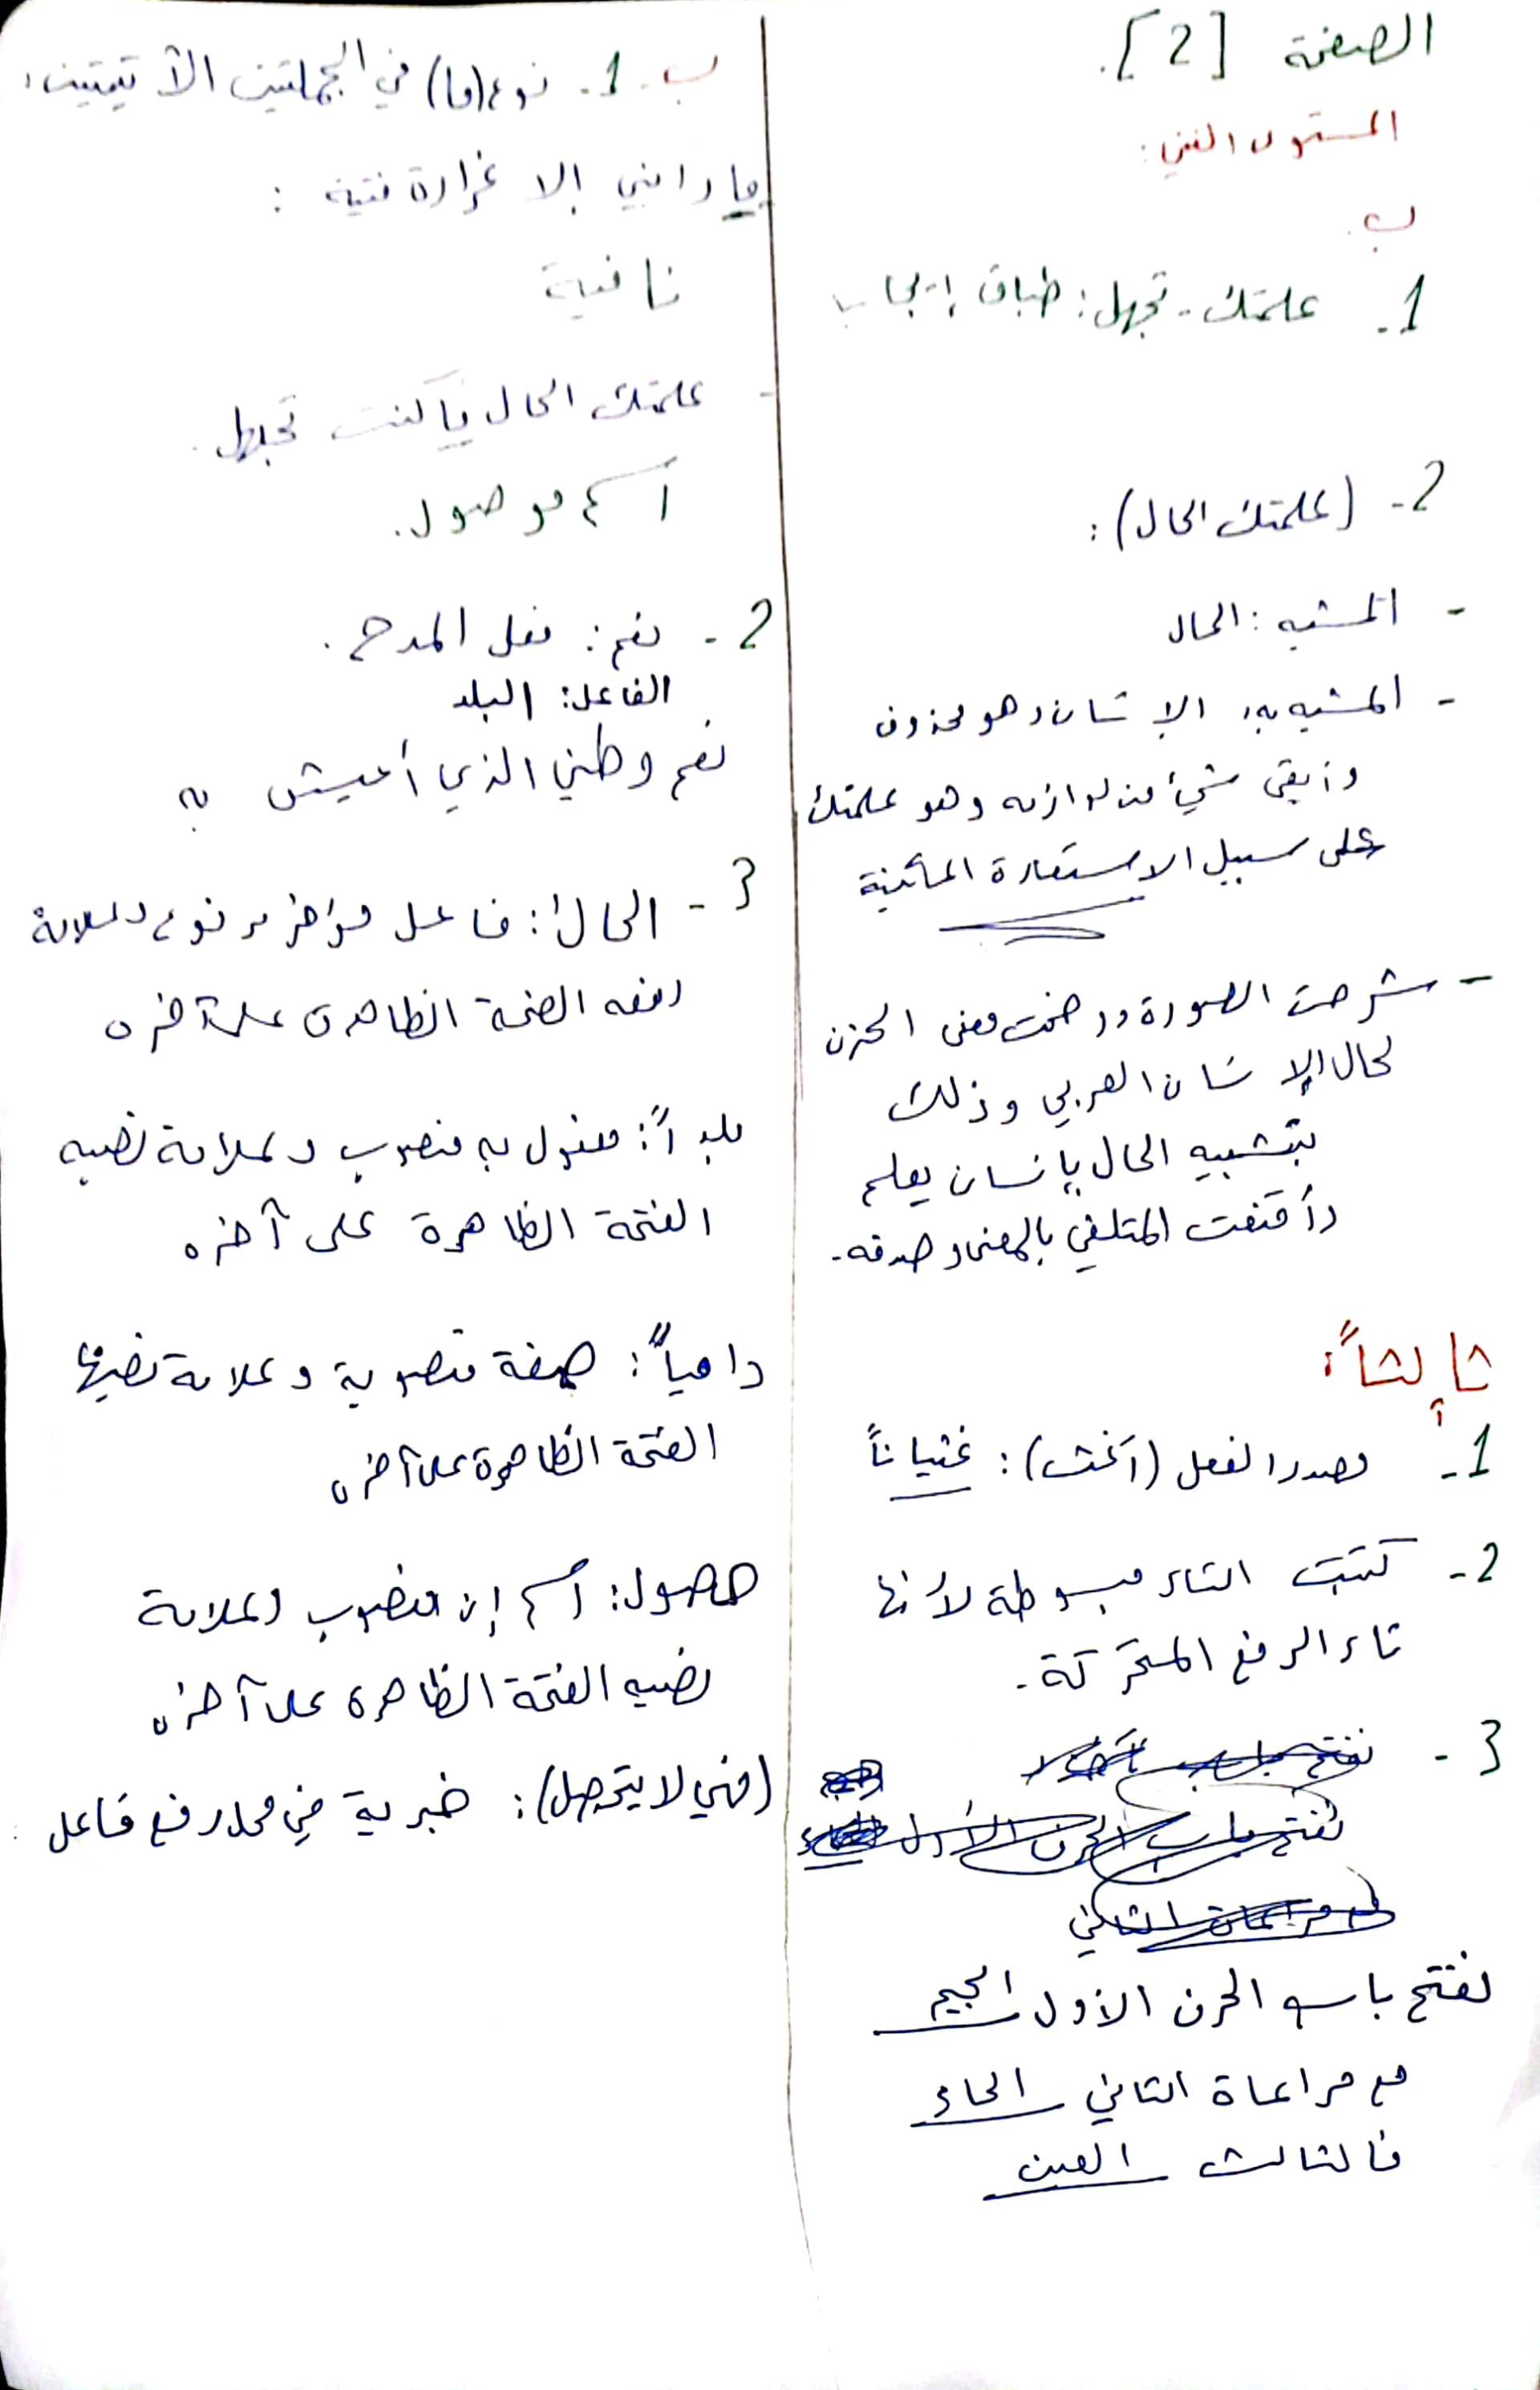 الصفحة [2].
المستوى الفني:
ب.
1- علمتك - تجهل: طباق إيجاب
2- (علمتك الحال):
- المشبه: الحال
- المشبه به: الإنسان وهو محذوف
وأبقى شيء من لوازمه وهو علمتك
على سبيل الاستعارة المكنية
- شرحت الصورة ووضحت معنى الحزن
لحال الإنسان العربي وذلك
بتشبيه الحال بإنسان يعلم
وأقنعت المتلقي بالمعنى وصدقه.
ثالثاً:
1- مصدر الفعل (أغث): غثياناً
2- كتبت التاء مبسوطة لأنها
تاء الرفع المتحركة.
3-
نفتح باب الحرف الأول الجيم
مع مراعاة الثاني الحاء
فالثالث العين
ب - 1- نوع (ما) في الجملتين الآتيتين:
ما رابني إلا غرارة فتية:
نافية
- علمتك الحال ما كنت تجهل.
اسم موصول.
2- نعم: فعل المدح.
الفاعل: البلد
نعم وطني الذي أعيش به
3- الحال: فاعل مؤخر مرفوع وعلامة
رفعه الضمة الظاهرة على آخره
بلداً: مفعول به منصوب وعلامة نصبه
الفتحة الظاهرة على آخره
دامياً: صفة منصوبة وعلامة نصبها
الفتحة الظاهرة على آخره
حصول: اسم إن منصوب وعلامة
نصبه الفتحة الظاهرة على آخره
(فهي لا يتحصل): خبرية في محل رفع فاعل